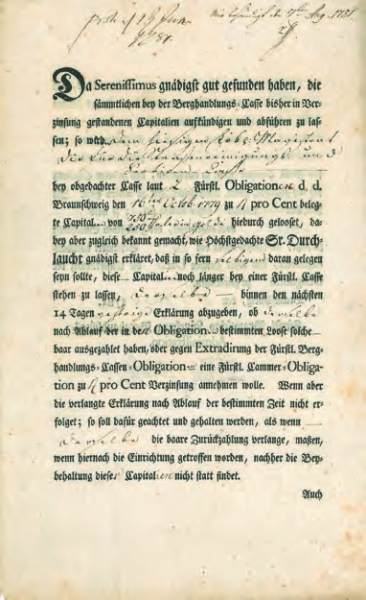 Da Serenissimus gnädigst gut gefunden haben, die
sämmtlichen bey der Berghandlungs-Casse bisher in Ver-
zinsung gestandenen Capitalien aufkündigen und abführen zu las-
sen; so wird dem hiesigen Löbl. Magistrat
und
bey obgedachter Casse laut 2 Fürstl. Obligationen d. d.
Braunschweig den 16ten Octob. 1779 zu 4 pro Cent beleg-
te Capital von hiedurch gelooset, da-
bey aber zugleich bekannt gemacht, wie Höchstgedachte St. Durch-
laucht gnädigst erkläret, daß in so fern daran gelegen
seyn sollte, diese Capital noch länger bey einer Fürstl. Casse
stehen zu lassen, derselbe binnen den nächsten
14 Tagen Erklärung abzugeben, ob derselbe
nach Ablauf der in den Obligation bestimmten Loose solche
baar ausgezahlt haben, oder gegen Extradirung der Fürstl. Berg-
handlungs-Cassen-Obligation eine Fürstl. Cammer-Obliga-
tion zu 4 pro Cent Verzinsung annehmen wolle. Wenn aber
die verlangte Erklärung nach Ablauf der bestimmten Zeit nicht er-
folget; so soll dafür geachtet und gehalten werden, als wenn
derselbe die baare Zurückzahlung verlange, maßen,
wenn hiernach die Einrichtung getroffen worden, nachher die Bey-
behaltung dieser Capitalien nicht statt findet.
Auch